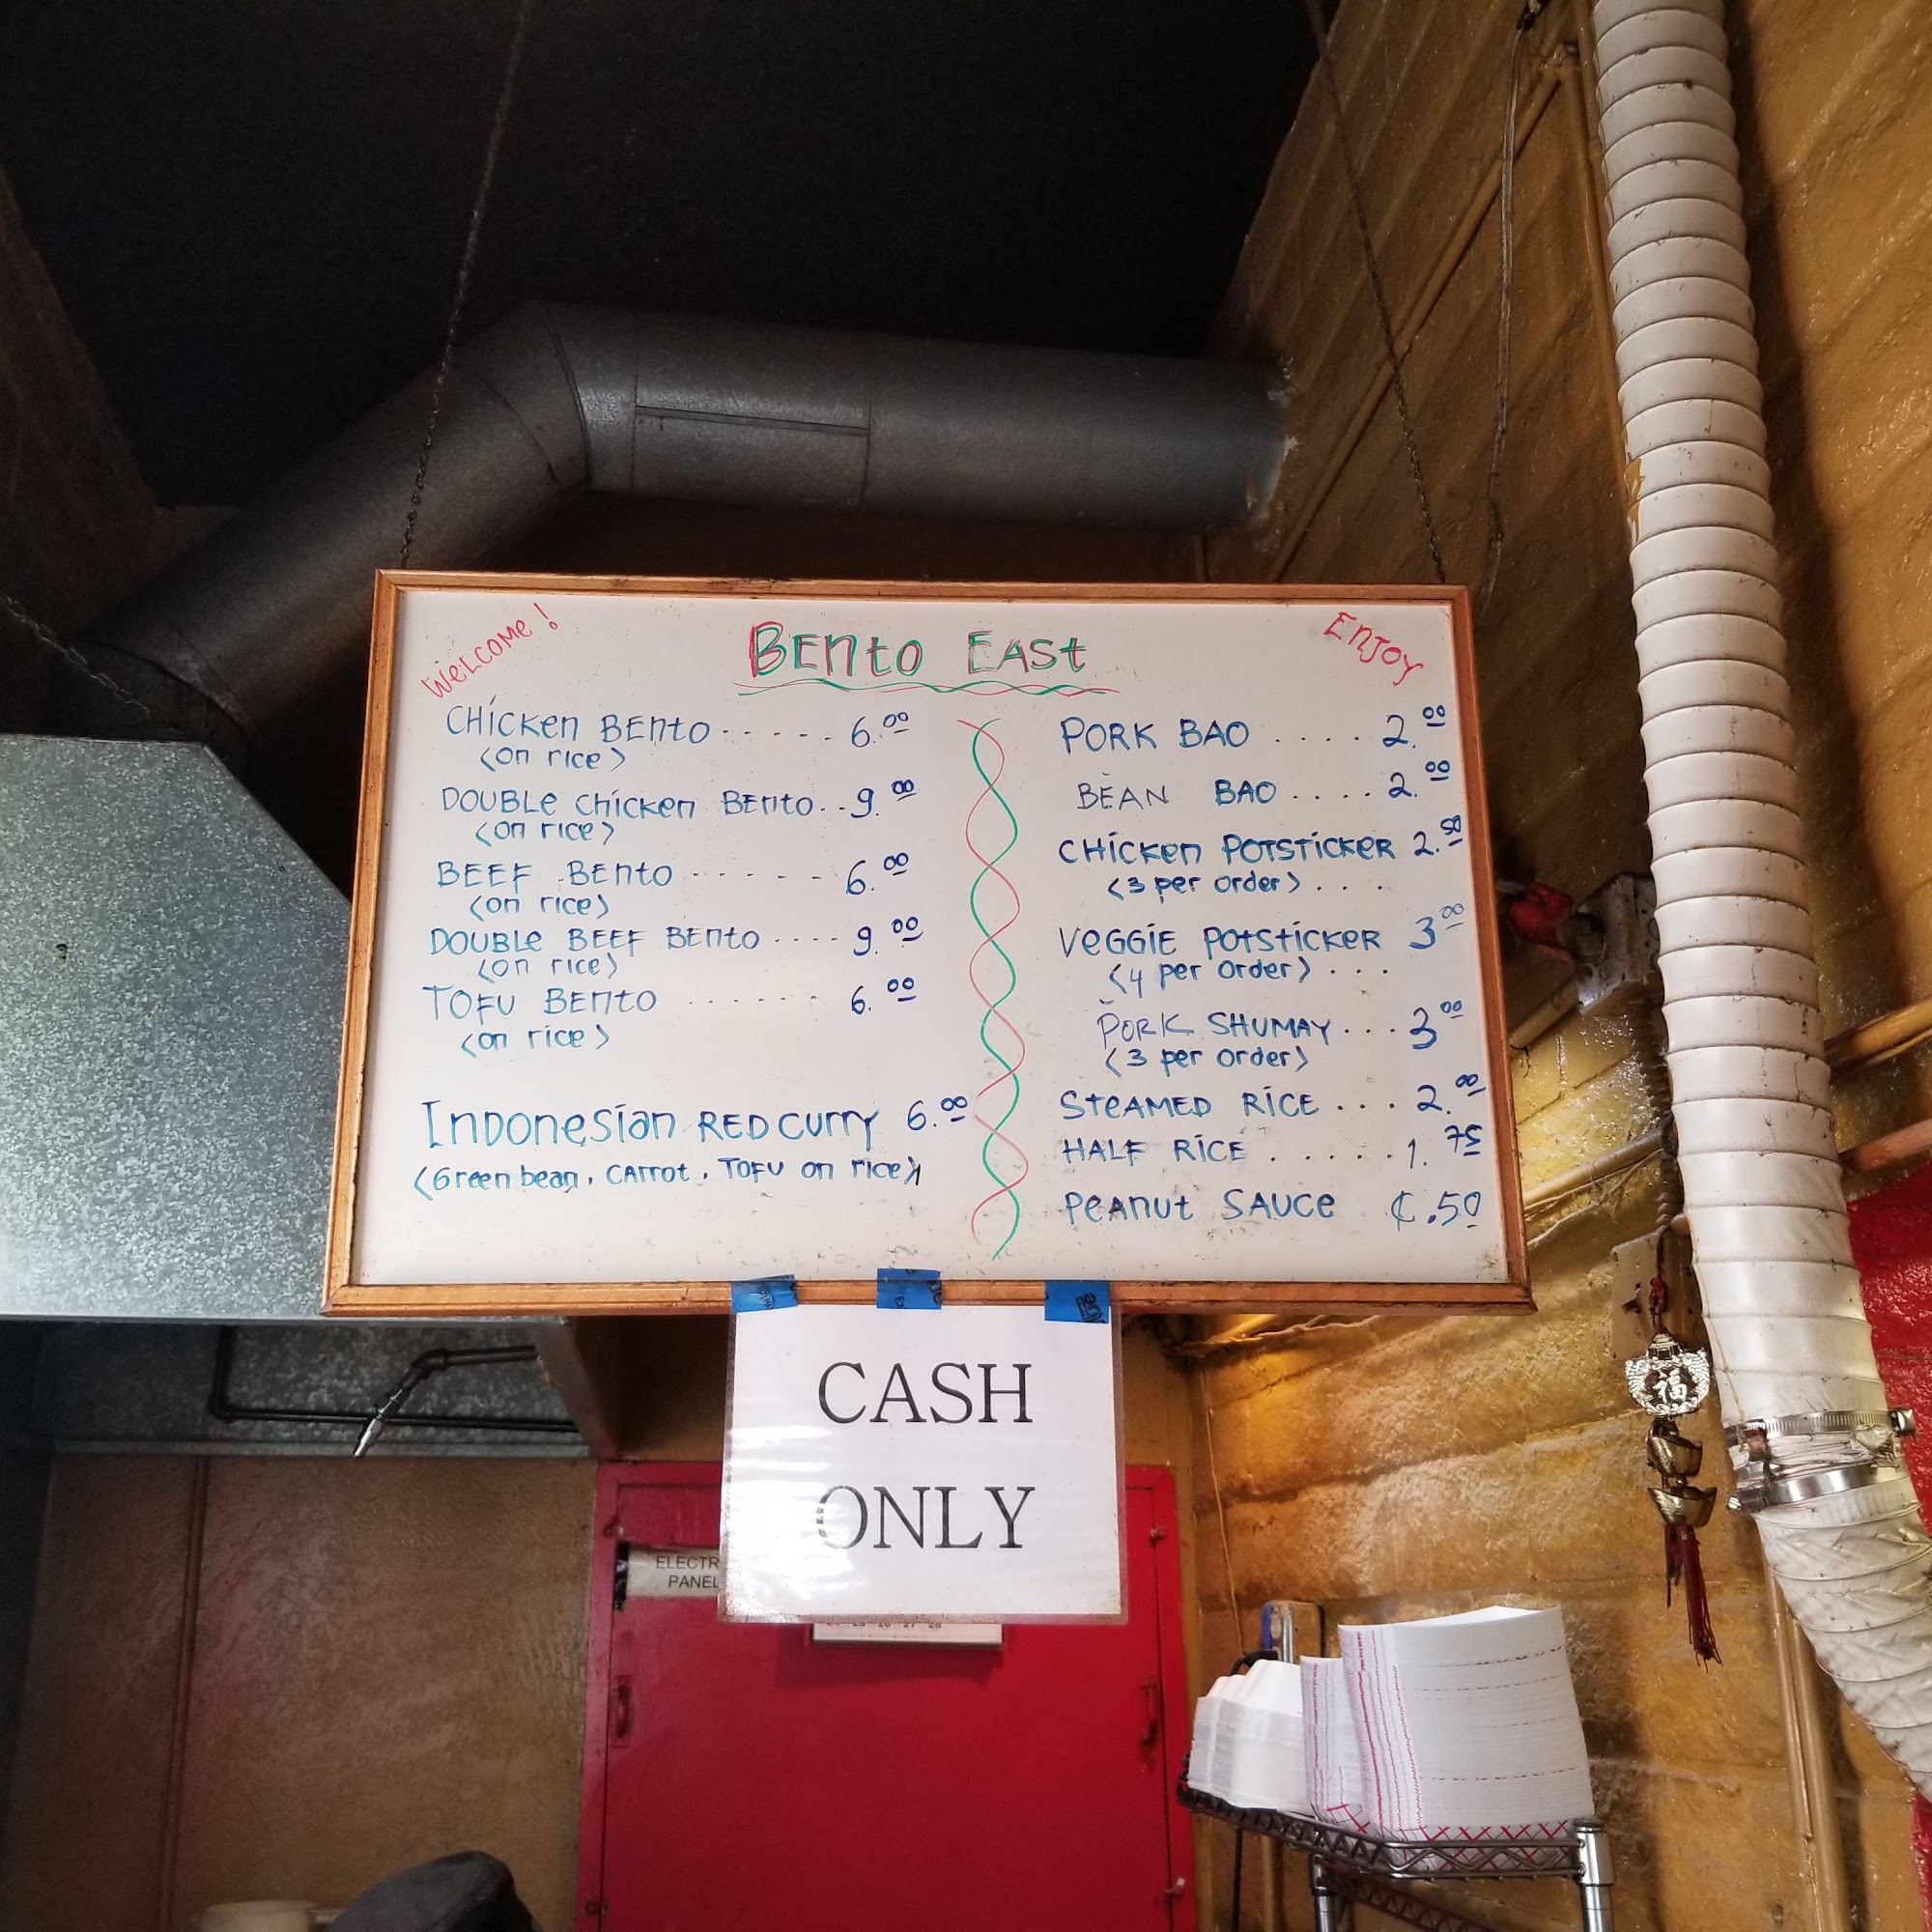 Welcome!
Bento East
Enjoy
Chicken Bento ------ 6.00
(on rice)
Double Chicken Bento..-9.00
(on rice)
Beef Bento ------ 6.00
(on rice)
Double Beef Bento ---- 9.00
(on rice)
Tofu Bento ...... 6.00
(on rice)
Indonesian Red Curry 6.00
(Green bean, Carrot, Tofu on rice)
Pork Bao .... 2.00
Bean Bao .... 2.00
Chicken Potsticker 2.50
(3 per order) ...
Veggie Potsticker 3.00
(4 per order) ...
Pork Shumay ... 3.00
(3 per order)
Steamed Rice ... 2.00
Half Rice ..... 1.75
Peanut Sauce ¢.50
CASH
ONLY
PANEL
福